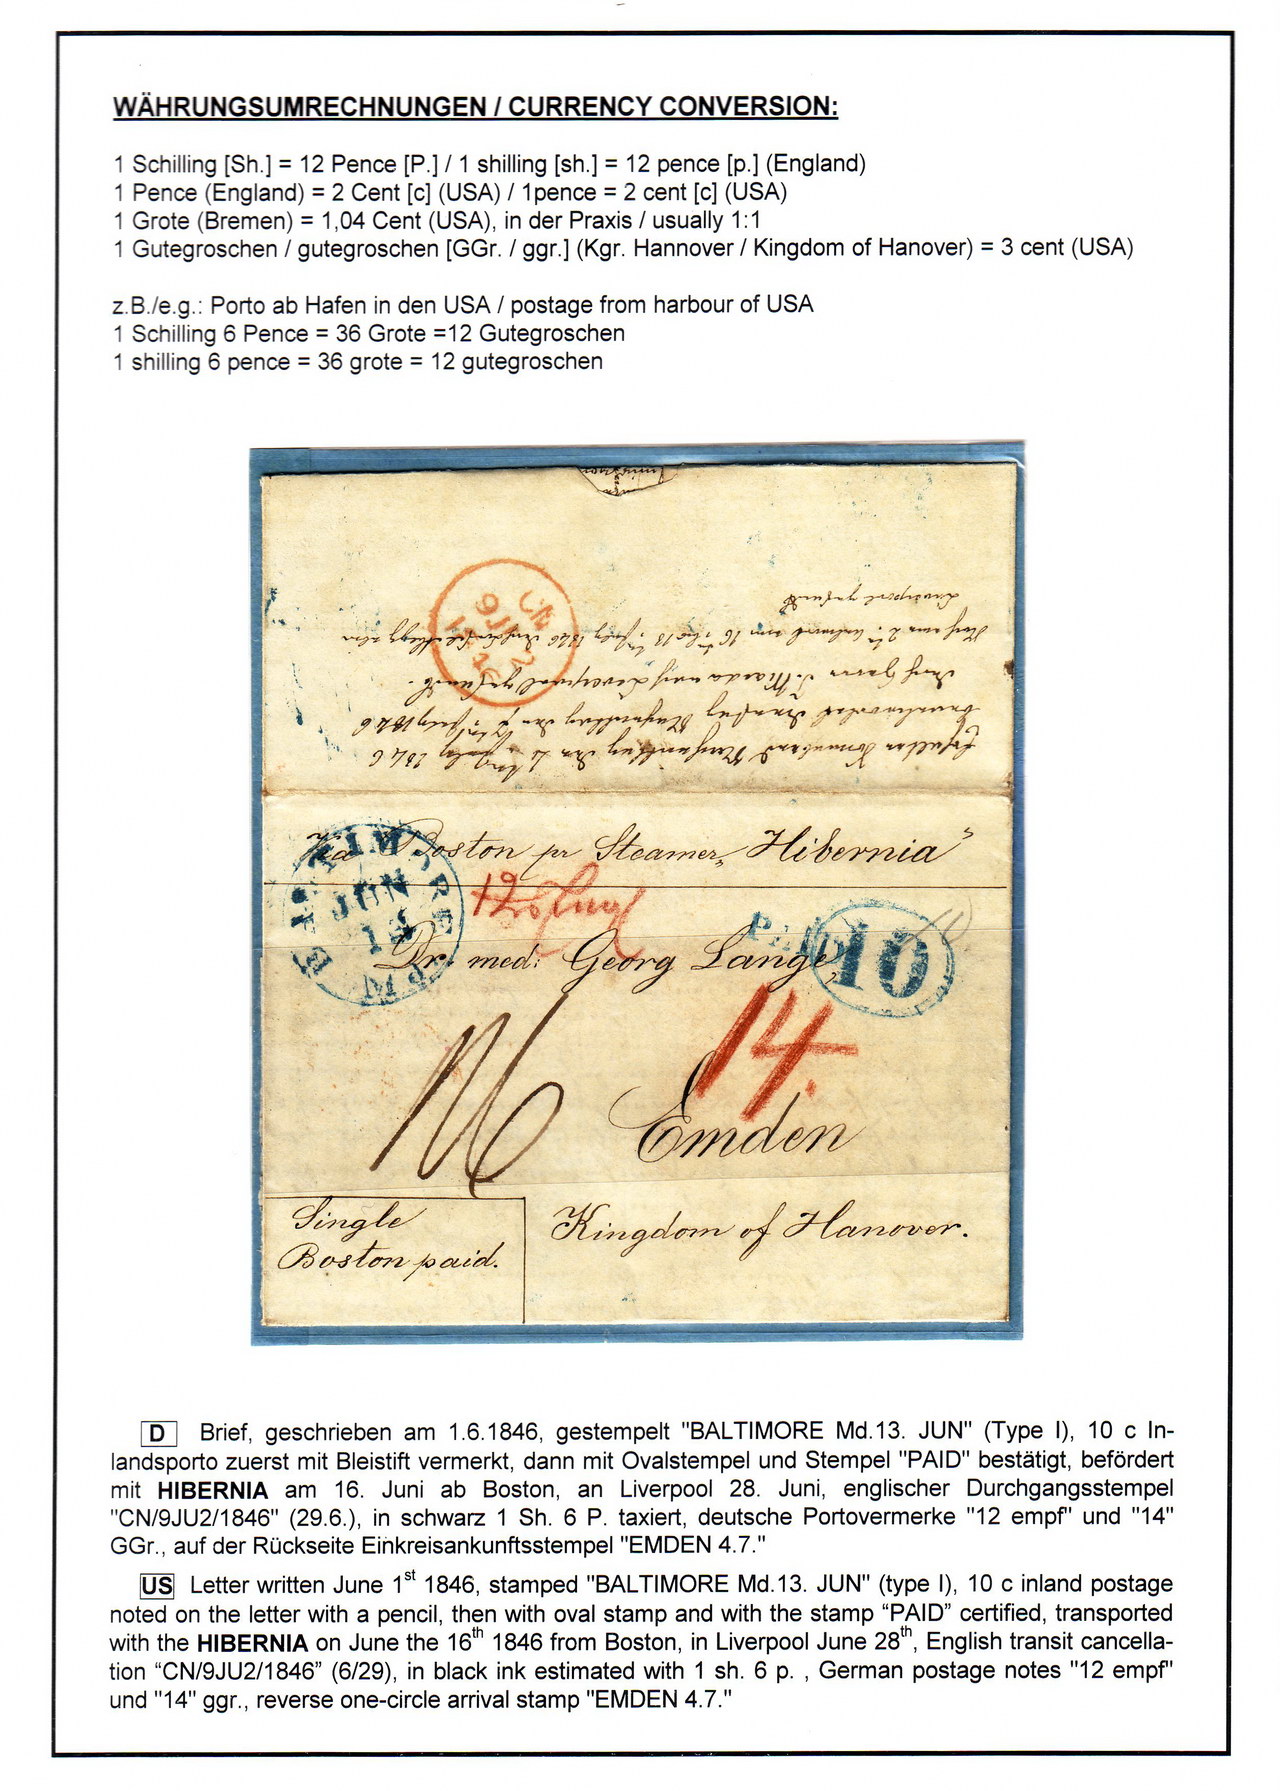 WÄHRUNGSUMRECHNUNGEN / CURRENCY CONVERSION:
1 Schilling [Sh.] = 12 Pence [P.] / 1 shilling [sh.] = 12 pence [p.] (England)
1 Pence (England) = 2 Cent [c] (USA) / 1pence = 2 cent [c] (USA)
1 Grote (Bremen) = 1,04 Cent (USA), in der Praxis / usually 1:1
1 Gutegroschen / gutegroschen [GGr. / ggr.] (Kgr. Hannover / Kingdom of Hanover) = 3 cent (USA)
z.B./e.g.: Porto ab Hafen in den USA / postage from harbour of USA
1 Schilling 6 Pence = 36 Grote =12 Gutegroschen
1 shilling 6 pence = 36 grote = 12 gutegroschen
CN
9JU2
1846
Via Boston pr Steamer „Hibernia"
BALTIMORE Md.
JUN
13
12
PAID
10
Dr. med: Georg Lange,
1/6
14.
Emden
Single
Boston paid.
Kingdom of Hanover.
D Brief, geschrieben am 1.6.1846, gestempelt "BALTIMORE Md.13. JUN" (Type I), 10 c In-
landsporto zuerst mit Bleistift vermerkt, dann mit Ovalstempel und Stempel "PAID" bestätigt, befördert
mit HIBERNIA am 16. Juni ab Boston, an Liverpool 28. Juni, englischer Durchgangsstempel
"CN/9JU2/1846" (29.6.), in schwarz 1 Sh. 6 P. taxiert, deutsche Portovermerke "12 empf" und "14"
GGr., auf der Rückseite Einkreisankunftsstempel "EMDEN 4.7."
US Letter written June 1st 1846, stamped "BALTIMORE Md.13. JUN" (type I), 10 c inland postage
noted on the letter with a pencil, then with oval stamp and with the stamp “PAID” certified, transported
with the HIBERNIA on June the 16th 1846 from Boston, in Liverpool June 28th, English transit cancella-
tion “CN/9JU2/1846” (6/29), in black ink estimated with 1 sh. 6 p. , German postage notes "12 empf"
und "14" ggr., reverse one-circle arrival stamp "EMDEN 4.7."